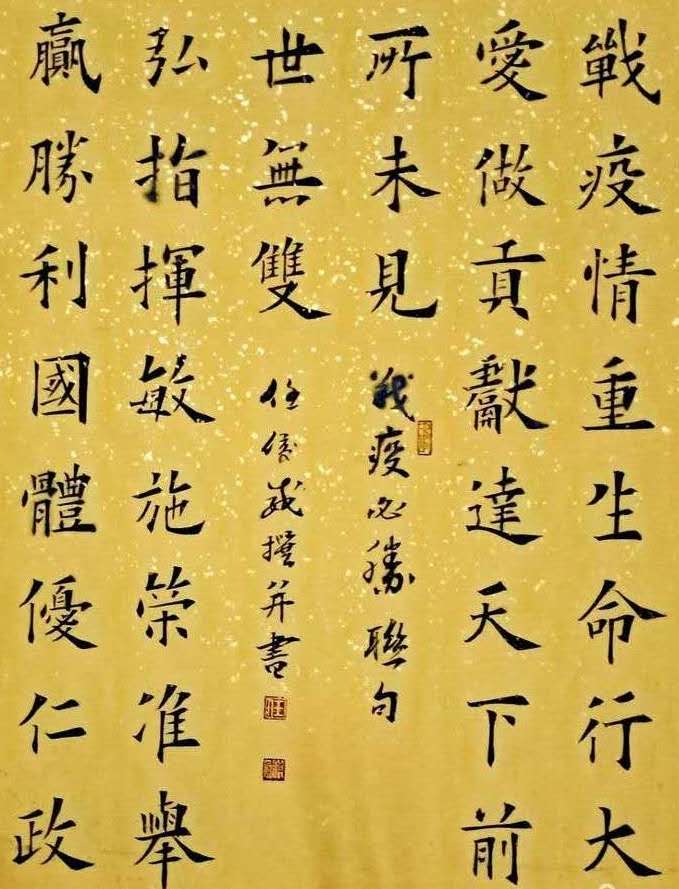 戰疫情重生命行大
愛做貢獻達天下前
所未見
戰疫必勝聯句
贏勝利國體優仁政
弘指揮敏施榮准舉
世無雙
任撰并書